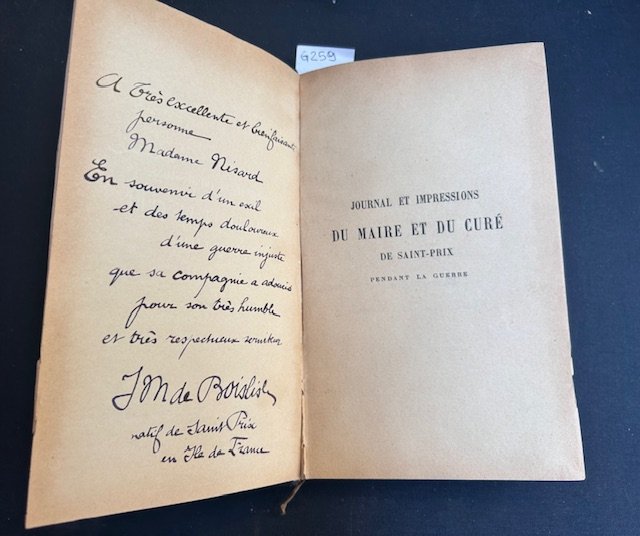 G259
A Très excellente et bienfaisante
personne
Madame Nisard
En souvenir d'un exil
et des temps douloureux
d'une guerre injuste
que sa compagnie a adoucis
pour son très humble
et très respectueux serviteur
JM de Boislisle
natif de Saint Prix
en Ile de France
JOURNAL ET IMPRESSIONS
DU MAIRE ET DU CURÉ
DE SAINT-PRIX
PENDANT LA GUERRE